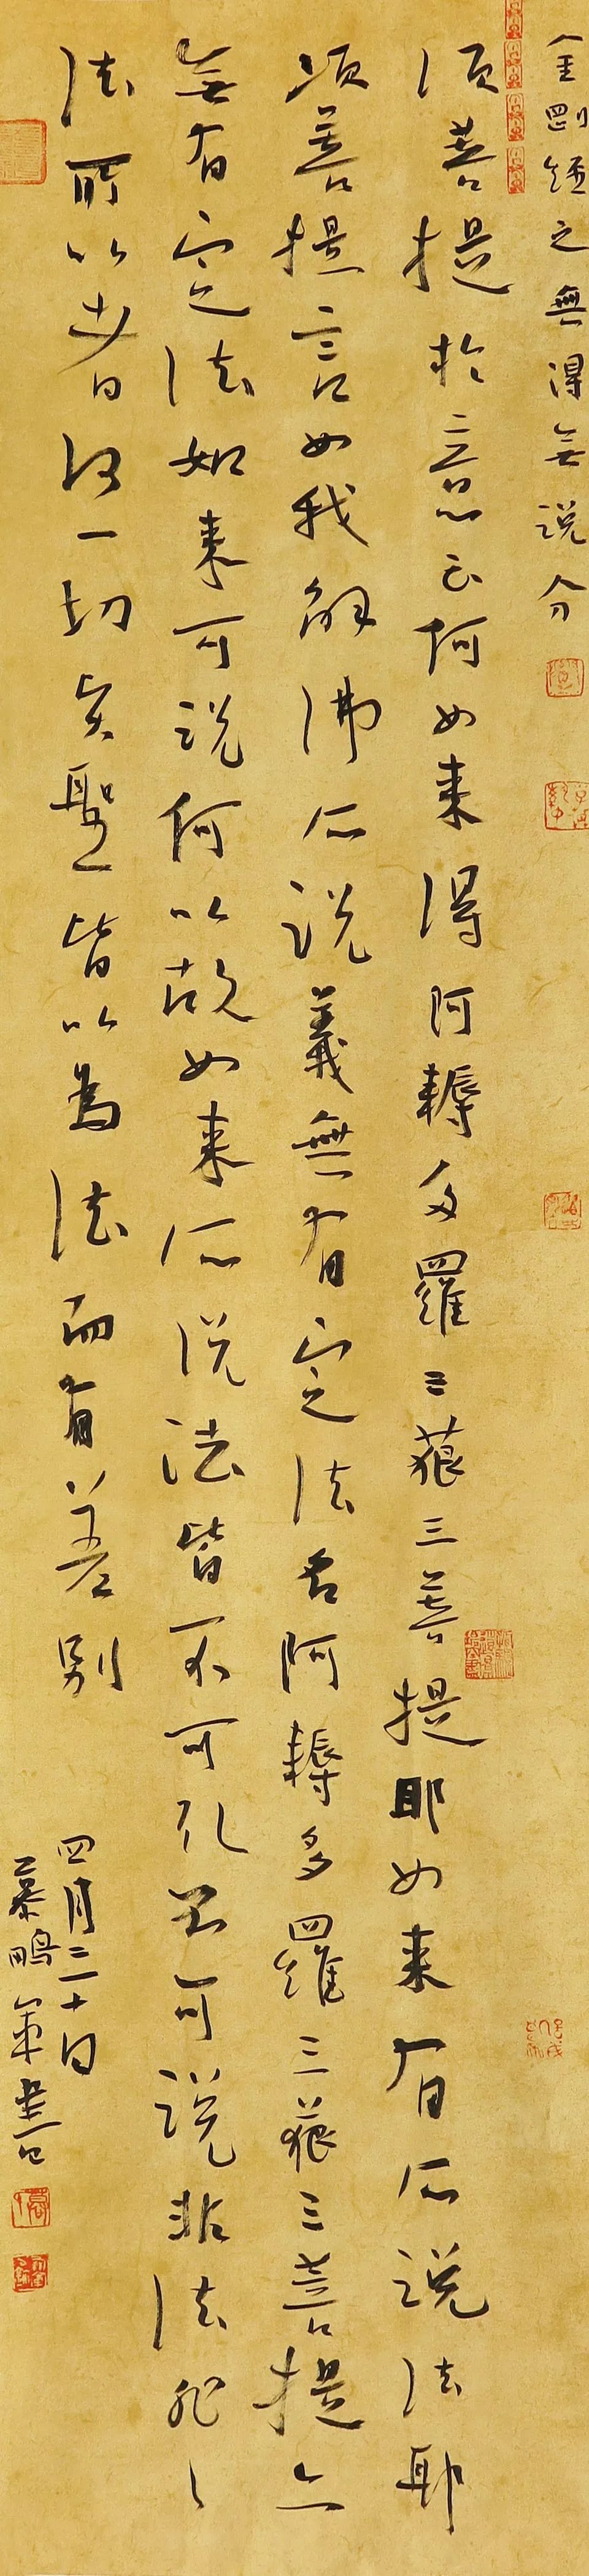 金剛經之無得無說分
須菩提於意云何如來得阿耨多羅三藐三菩提耶如來有所說法耶
須菩提言如我解佛所說義無有定法名阿耨多羅三藐三菩提亦
無有定法如來可說何以故如來所說法皆不可取不可說非法非〻
法所以者何一切賢聖皆以為法而有差別
四月三十日
慕 軍書